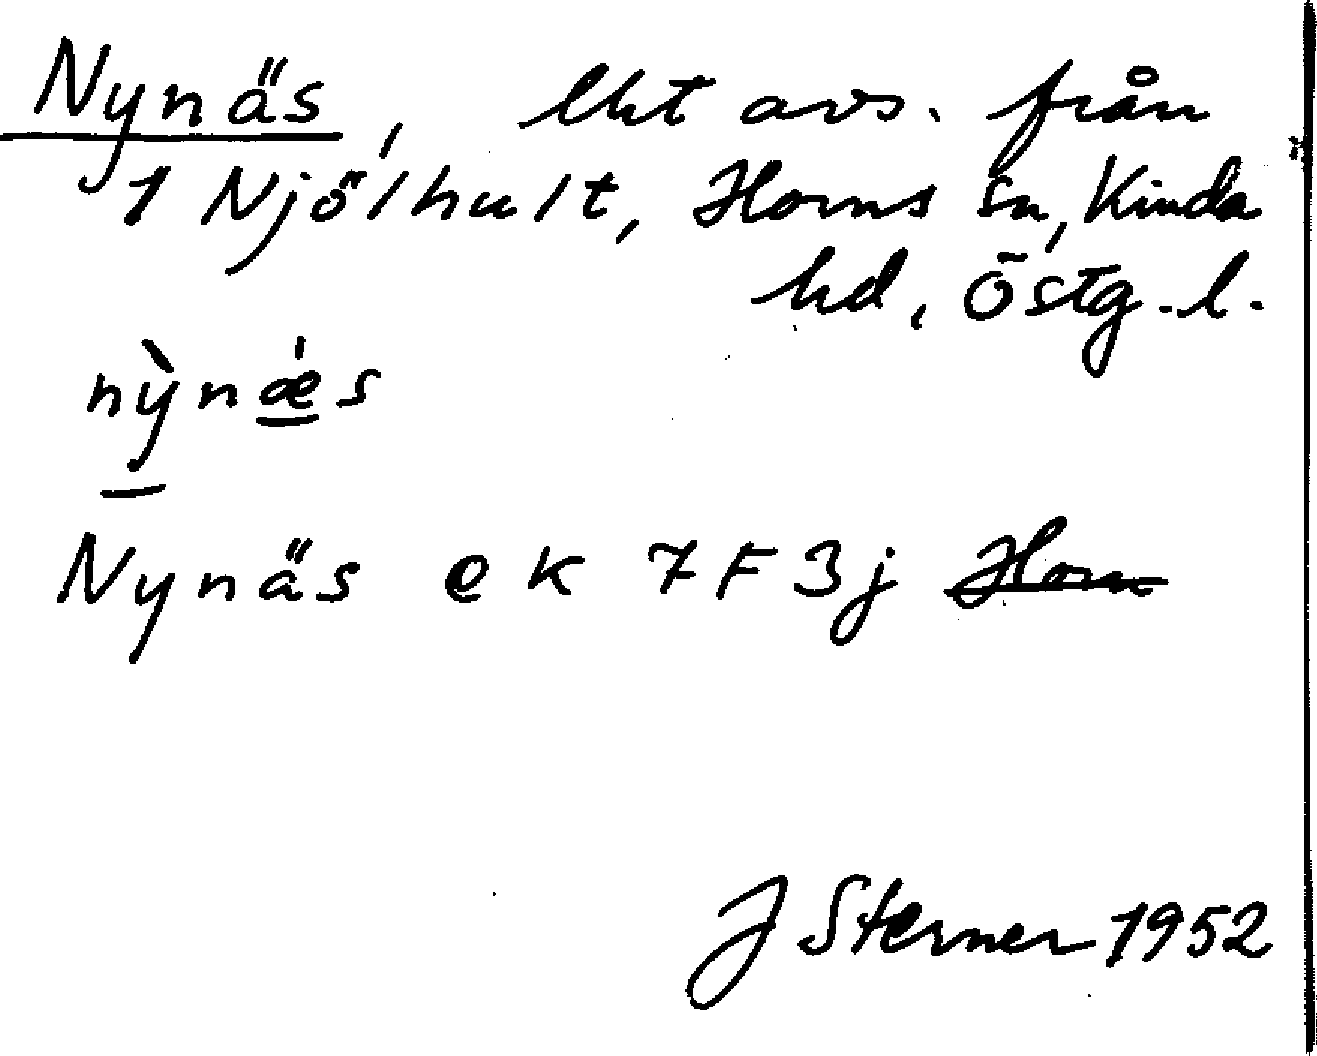 Nynäs, lht avs. från
1 Njölhult, Horns sn, Kinda
hd, Östg.l.
nỳnǽs
Nynäs ek 7F3j Horn
J Sterner 1952